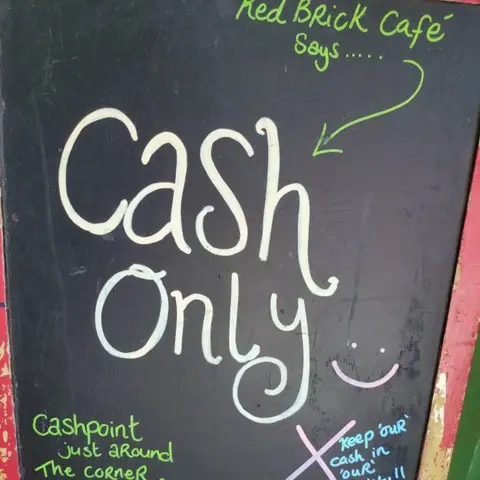 Red Brick Café
Says.....
Cash
Only
Cashpoint
just around
The corner.
Keep 'our'
cash in
'our'